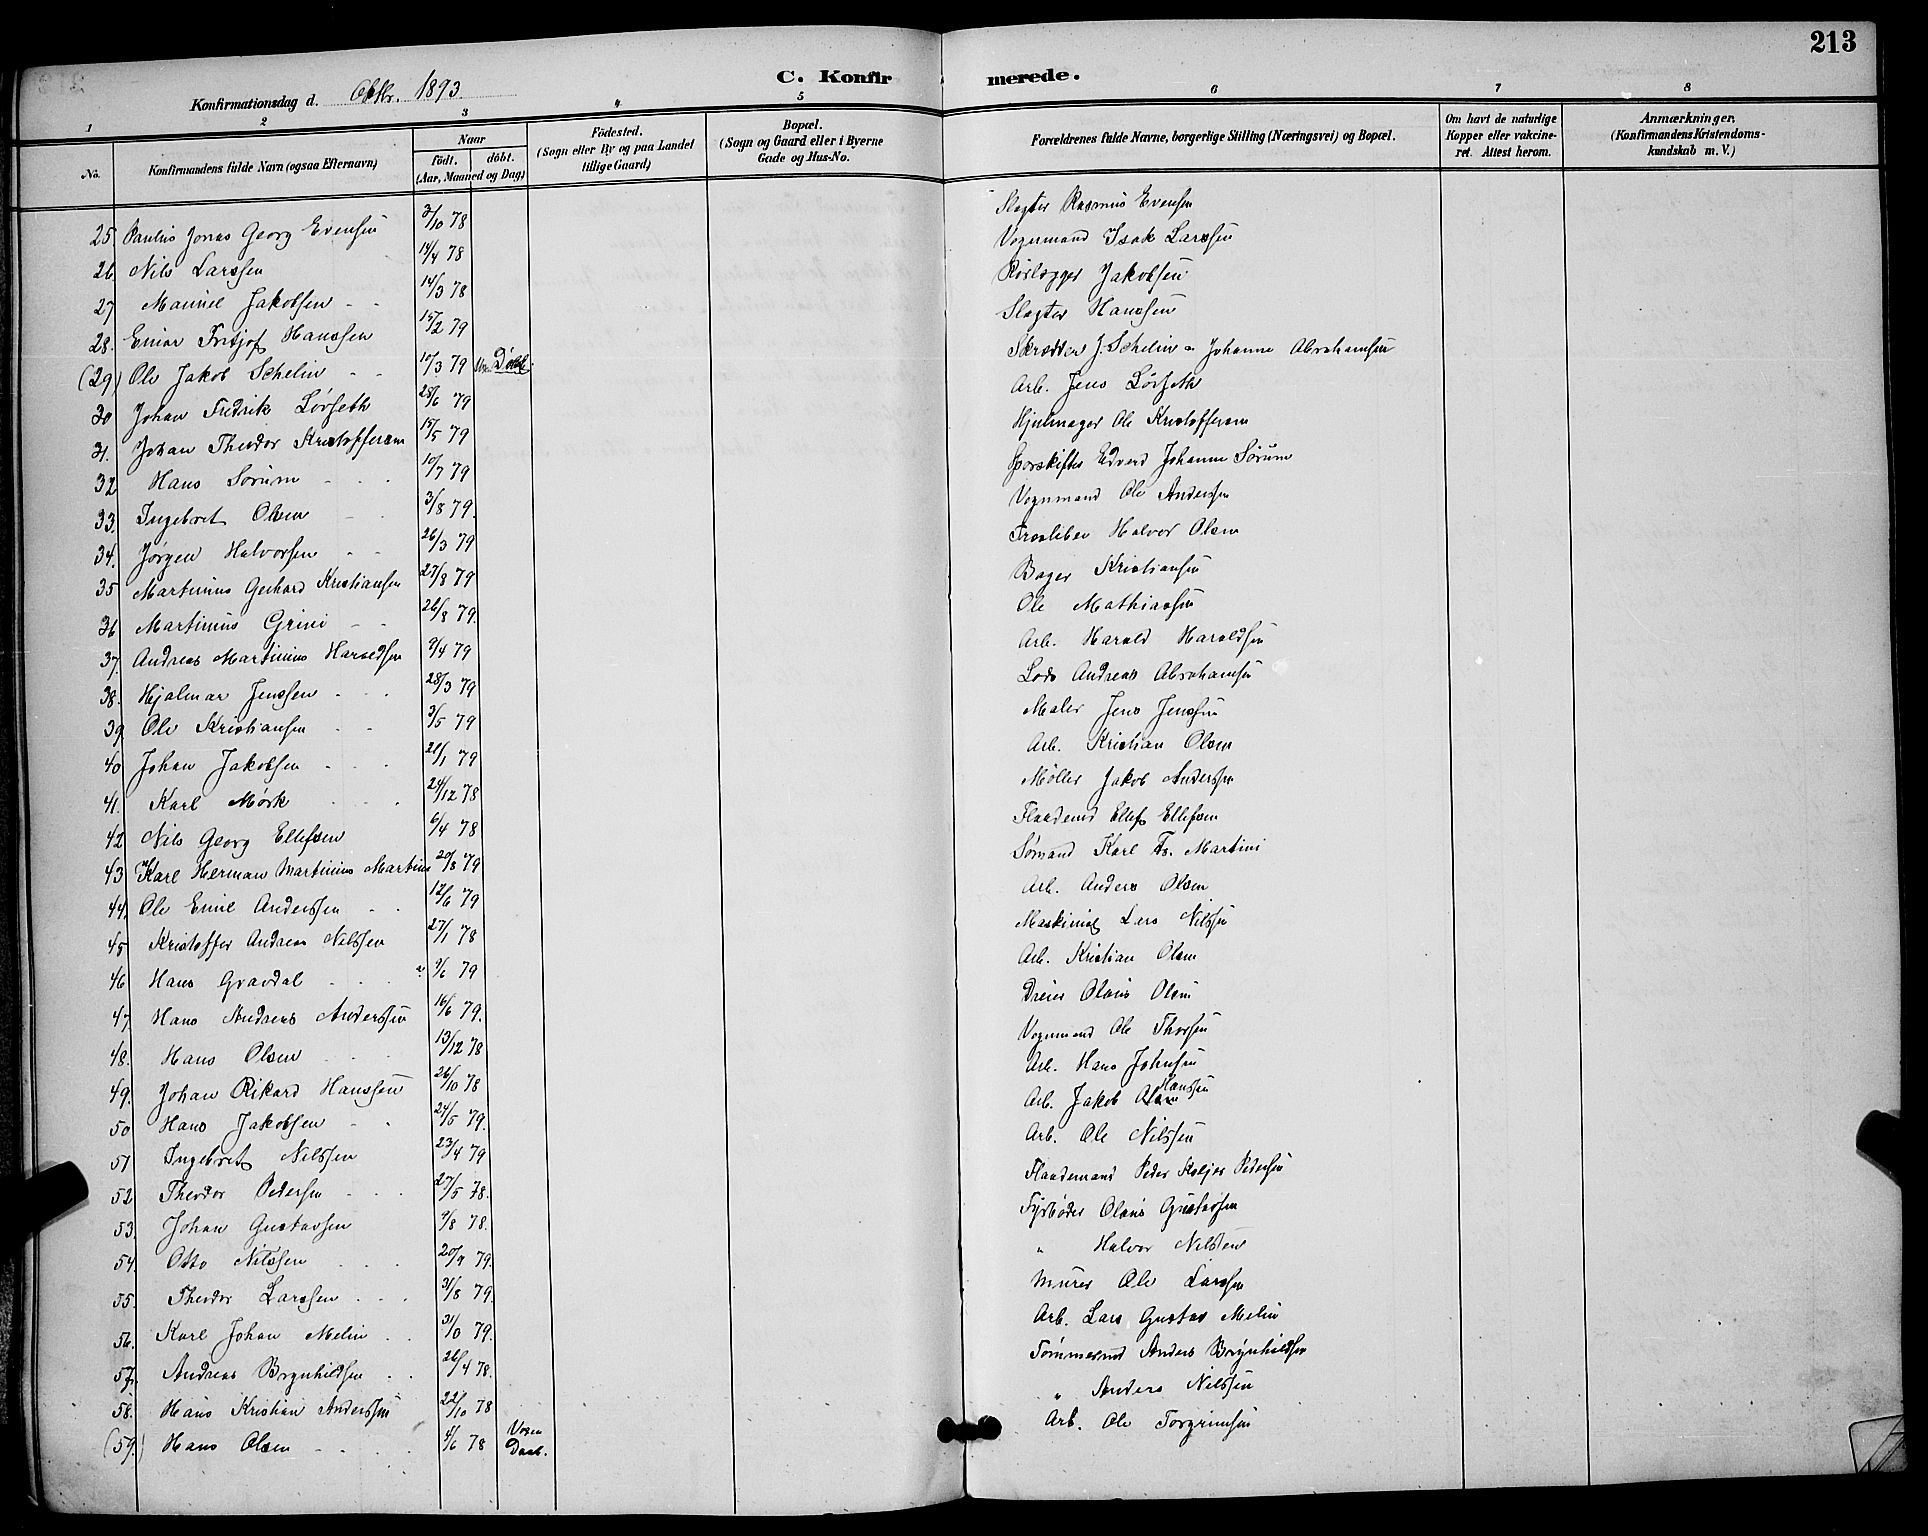 213
C. Konfirmerede.
Konfirmationsdag d. Oktbr. 1893.
1 2 3 4 5 6 7 8
No.
Konfirmandens fulde Navn (ogsaa Efternavn)
Naar
födt. döbt.
(Aar, Maaned og Dag)
Födested.
(Sogn eller By og paa Landet
tillige Gaard)
Bopæl.
(Sogn og Gaard eller i Byerne
Gade og Hus-No.
Forældrenes fulde Navne, borgerlige Stilling (Næringsvei) og Bopæl.
Om havt de naturlige
Kopper eller vakcine-
ret. Attest herom.
Anmærkninger.
(Konfirmandens Kristendoms-
kundskab m. V.)
25 Paulus Jonas Georg Evensen 3/10 78 Slagter Rasmus Evensen
26 Nils Larssen 14/4 78 Vognmand Isak Larssen
27 Jakobsen 14/3 78 Rørlægger Jakobsen
28. Einar Fritjof Hanssen 15/2 79 Slagter Hanssen
(29) Ole Jakob Schelin 10/3 79 Skrædder J. Schelin Johanne Abrahamsen
30 Johan Fredrik Lörseth 28/6 79 Arb. Jens Lörseth
31. Johan Theodor Kristoffersen 15/5 79 Hjulmager Ole Kristoffersen
32 Hans Sörum 10/7 79 Sporskifter Edvard Johanne Sörum
33. Ingebret Olsen 3/8 79. Vognmand Ole Anderssen
34. Jörgen Halvorsen 26/3 79 Halvor Olsen
35 Martinius Gerhard Kristiansen 27/8 79 Bager Kristiansen
36 Martinius Grini 26/8 79. Ole Mathiassen
37. Andreas Martinius Haraldsen 9/4 79 Arb. Harald Haraldsen
38. Hjalmar Jenssen 28/3 79 Lods Andreas Abrahamsen
39 Ole Kristiansen 3/5 79 Maler Jens Jenssen
40 Johan Jakobsen 21/1 79 Arb. Kristian Olsen
41. Karl Mörk 24/12 78 Möller Jakob Anderssen
42 Nils Georg Ellefsen 6/4 78 Ellef Ellefsen
43 Karl Herman Martinius Martini 20/8 79 Sömand Karl Fr. Martini
44. Ole Emil Anderssen 12/6 79 Arb. Anders Olsen
45 Kristoffer Andreas Nilssen 27/1 78 Maskinist Lars Nilssen
46 Hans Gravdal 9/6 79 Arb. Kristian Olsen
47 Hans Andreas Anderssen 16/6 79. Dreier Olaus Olsen
48. Hans Olsen 13/12 78 Vognmand Ole Thorsen
49. Johan Rikard Hanssen 26/10 78 Arb. Hans Johnsen
50 Hans Jakobsen 24/5 79. Arb. Jakob Hanssen
51 Ingebret Nilssen 23/4 79 Arb. Ole Nilssen
52 Theodor Pedersen 27/5 78. Flaademand Peder Pedersen
53. Johan Gustavsen 9/8 78. Fyrböder Olaus Gustavsen
54. Otto Nilssen 20/7 79. " Halvor Nilssen
55. Theodor Larssen 31/8 79. Murer Ole Larssen
56. Karl Johan Melin 79. Arb. Lars Gustav Melin
57. Andreas Brynhildsen 26/4 78. Tömmermd Anders Brynhildsen
58. Hans Kristian Anderssen 22/10 78 " Anders Nilssen
(59.) Hans Olsen 4/6 78 Voxen Daab. Arb. Ole Torgrimsen